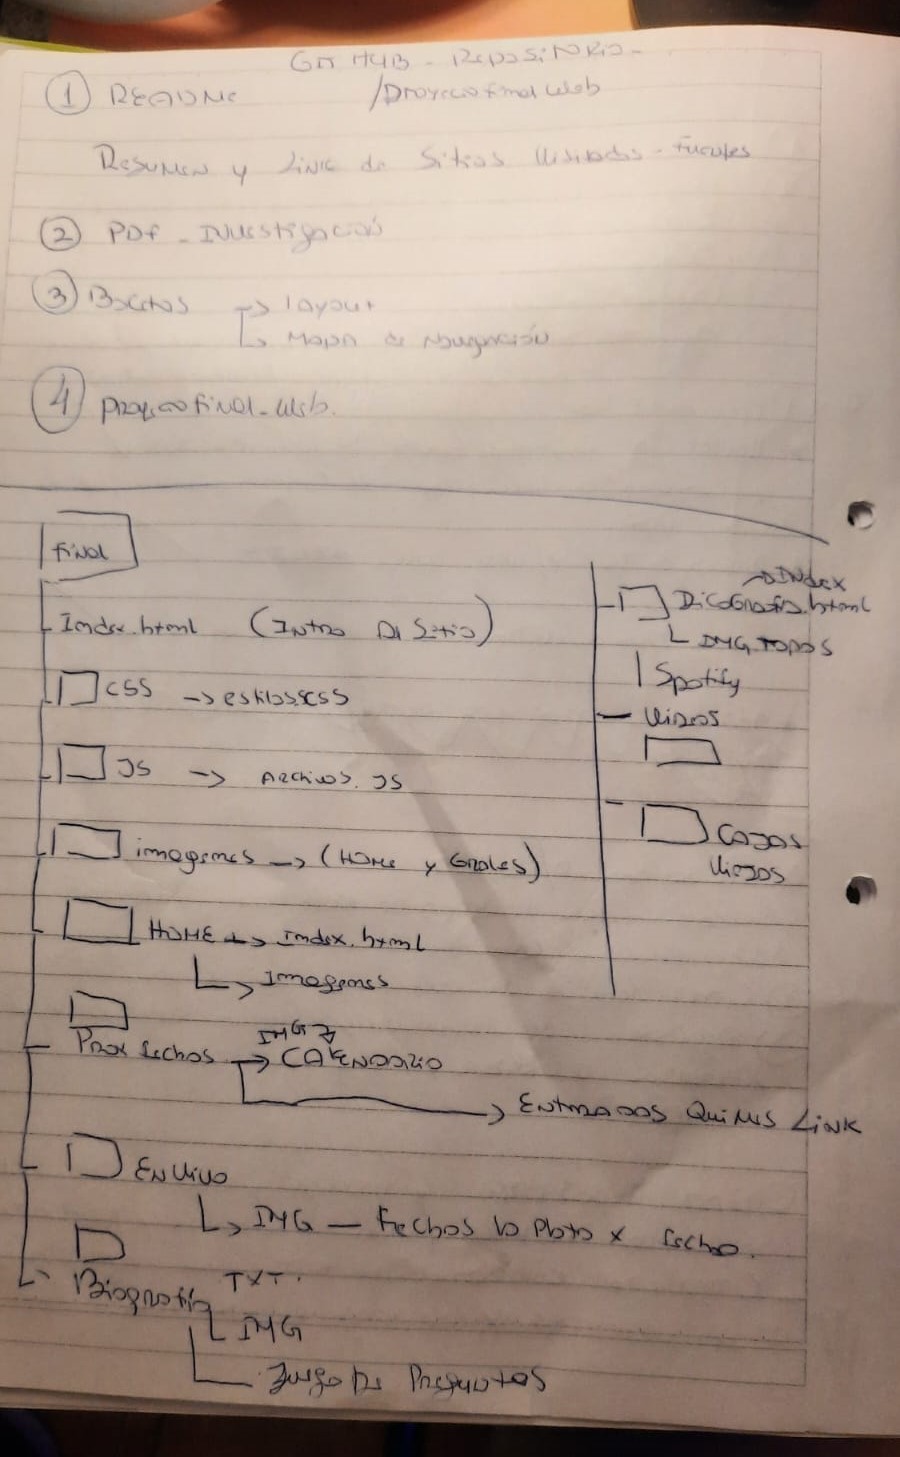 GitHUB - Repositorio -
① README /Proyecto final Web
Resumen y Link de Sitios Visitados - Fuentes
② PDF - Investigación
③ Bocetos -> layout
-> Mapa de Navegación
④ Proyecto final - Web.
final
Index.html (Intro Di Sitio)
CSS -> estilos.CSS
JS -> Archivos. JS
imagenes -> (HOME y Grales)
HOME -> Index.html
-> Imagenes
Prox fechas -> IMG CALENDARIO
-> ENTRADAS QUIMES LINK
EN VIVO
-> IMG — Fechas x fecha.
Biografia TXT.
IMG
Juego De Preguntas
-> INdex
DiscoGrafia.html
IMG TODOS
Spotify
Videos
Viejos